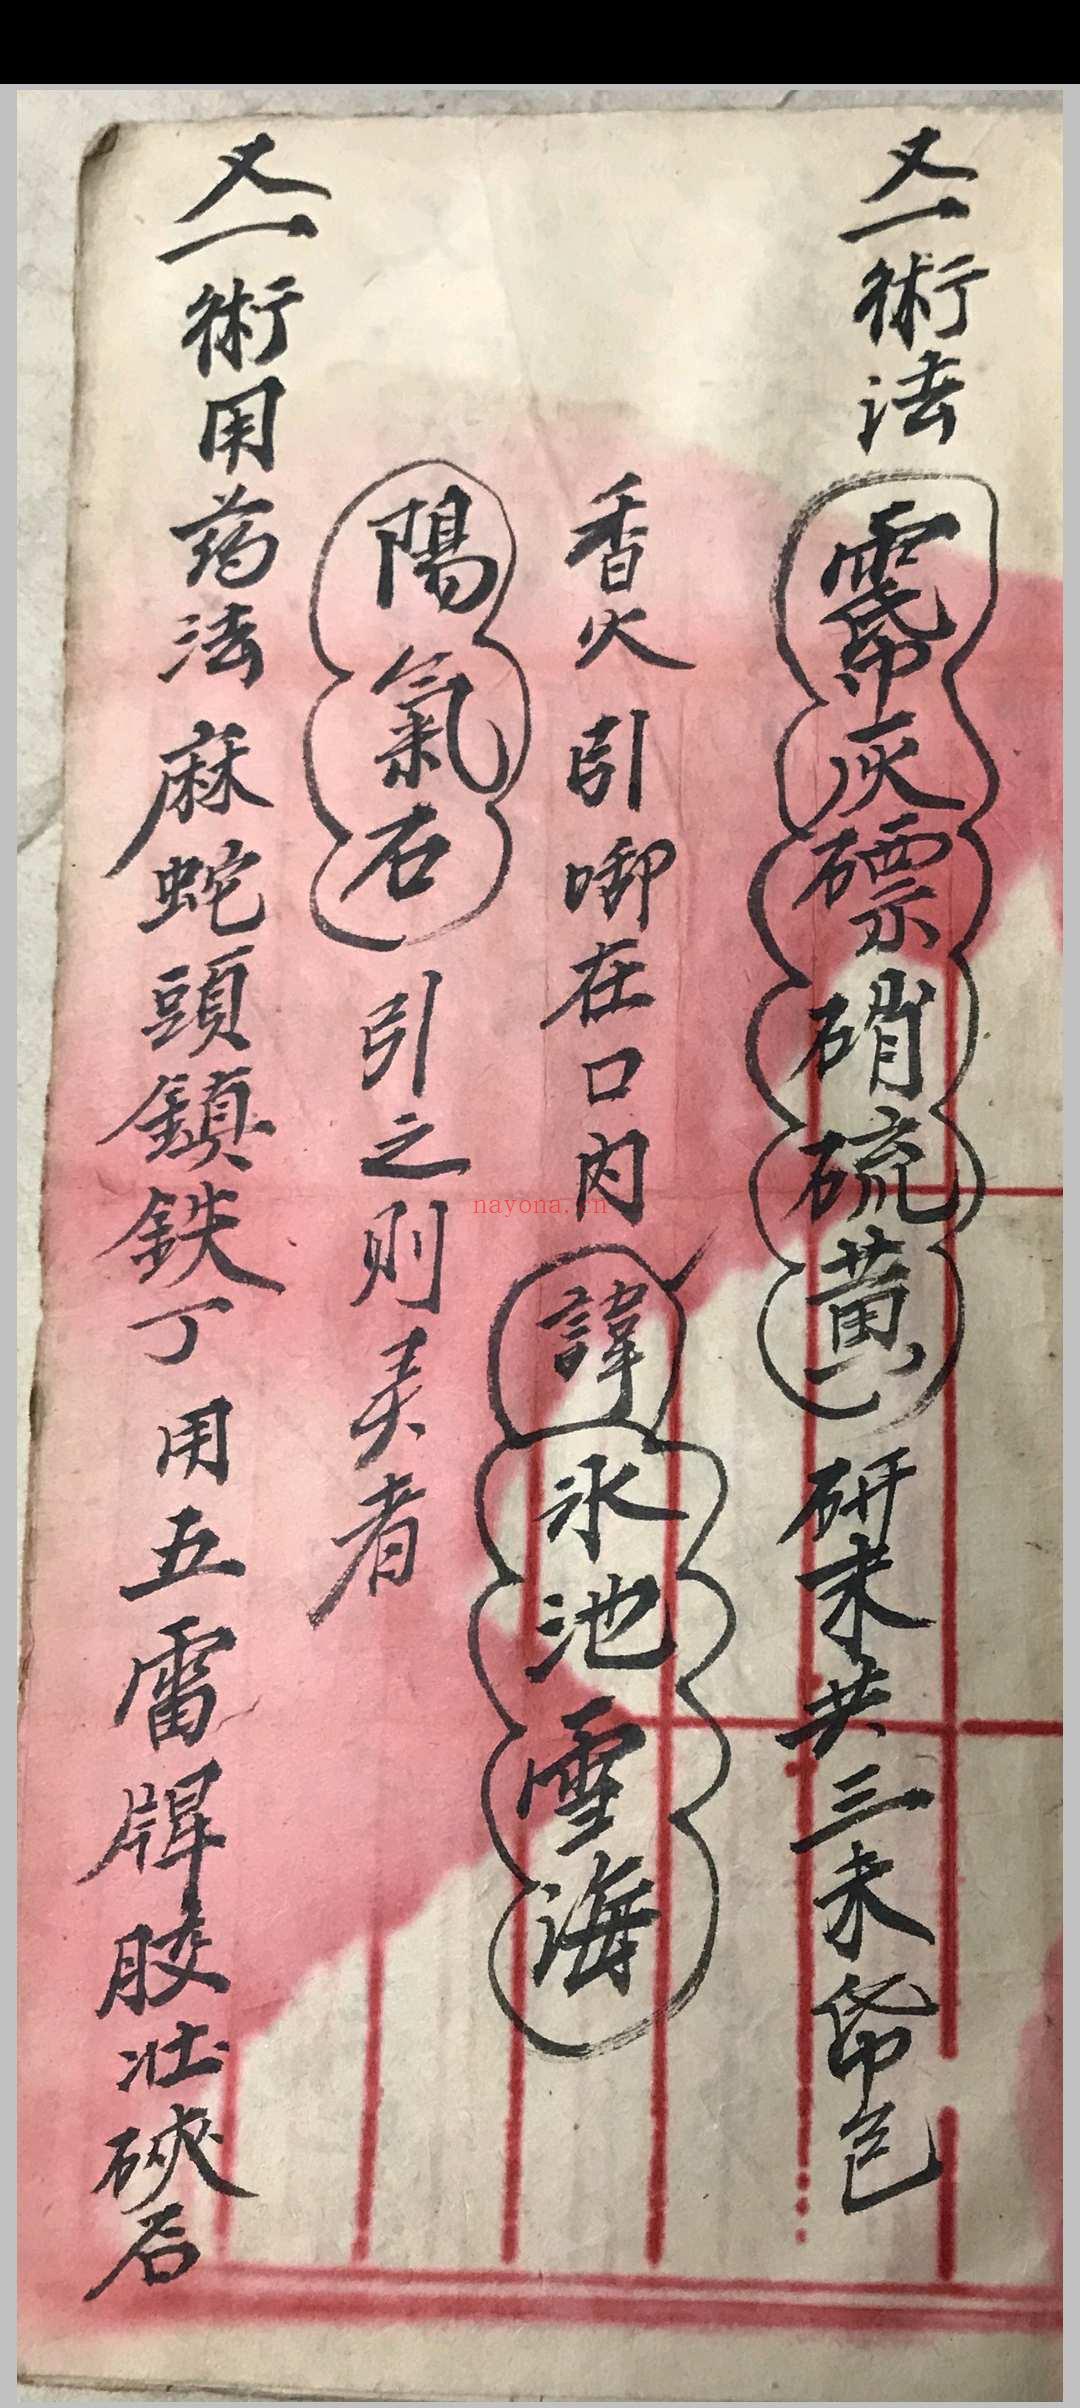 又一術法 灰磦硝硫黄 研末共三末帋包
香火引啣在口内 諱氷池雪海
陽氣石引之則美者
又一術用药法麻蛇頭鎮鉄丁用五雷牌胶壮硤石
nayona.cn